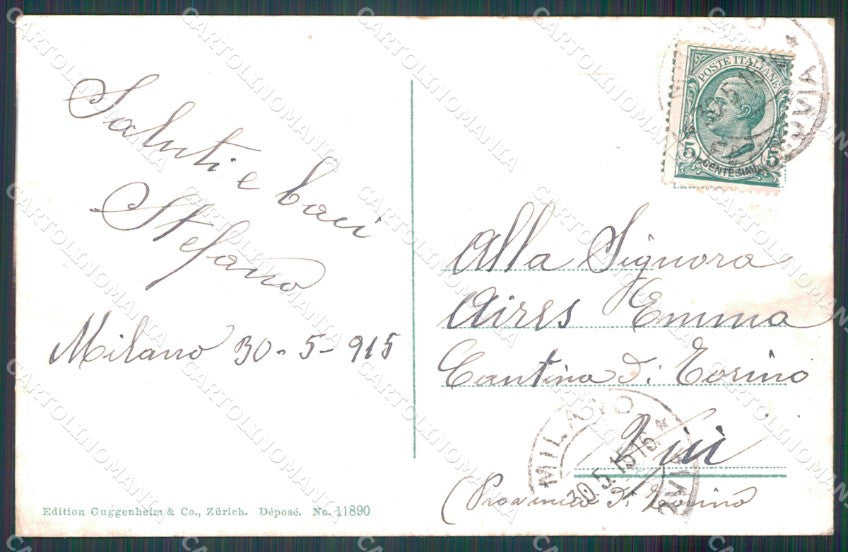 Saluti e baci
Stefano
Milano 30-5-915
Edition Guggenheim & Co., Zürich. Déposé. No. 11890
POSTE ITALIANE
5 CENTESIMI 5
Alla Signora
Aires Emma
Cantina di Torino
(Provincia di Torino
MILANO
30.5.15 16
CARTOLINOMANIA